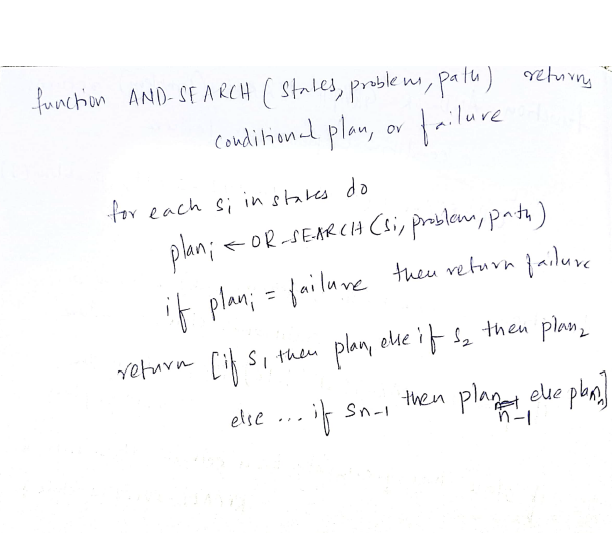 function AND-SEARCH (states, problem, path) returns
conditional plan, or failure
for each sᵢ in states do
planᵢ ← OR-SEARCH (sᵢ, problem, path)
if planᵢ = failure then return failure
return [if s₁ then plan₁ else if s₂ then plan₂
else ... if sn-1 then plan n-1 else planₙ]